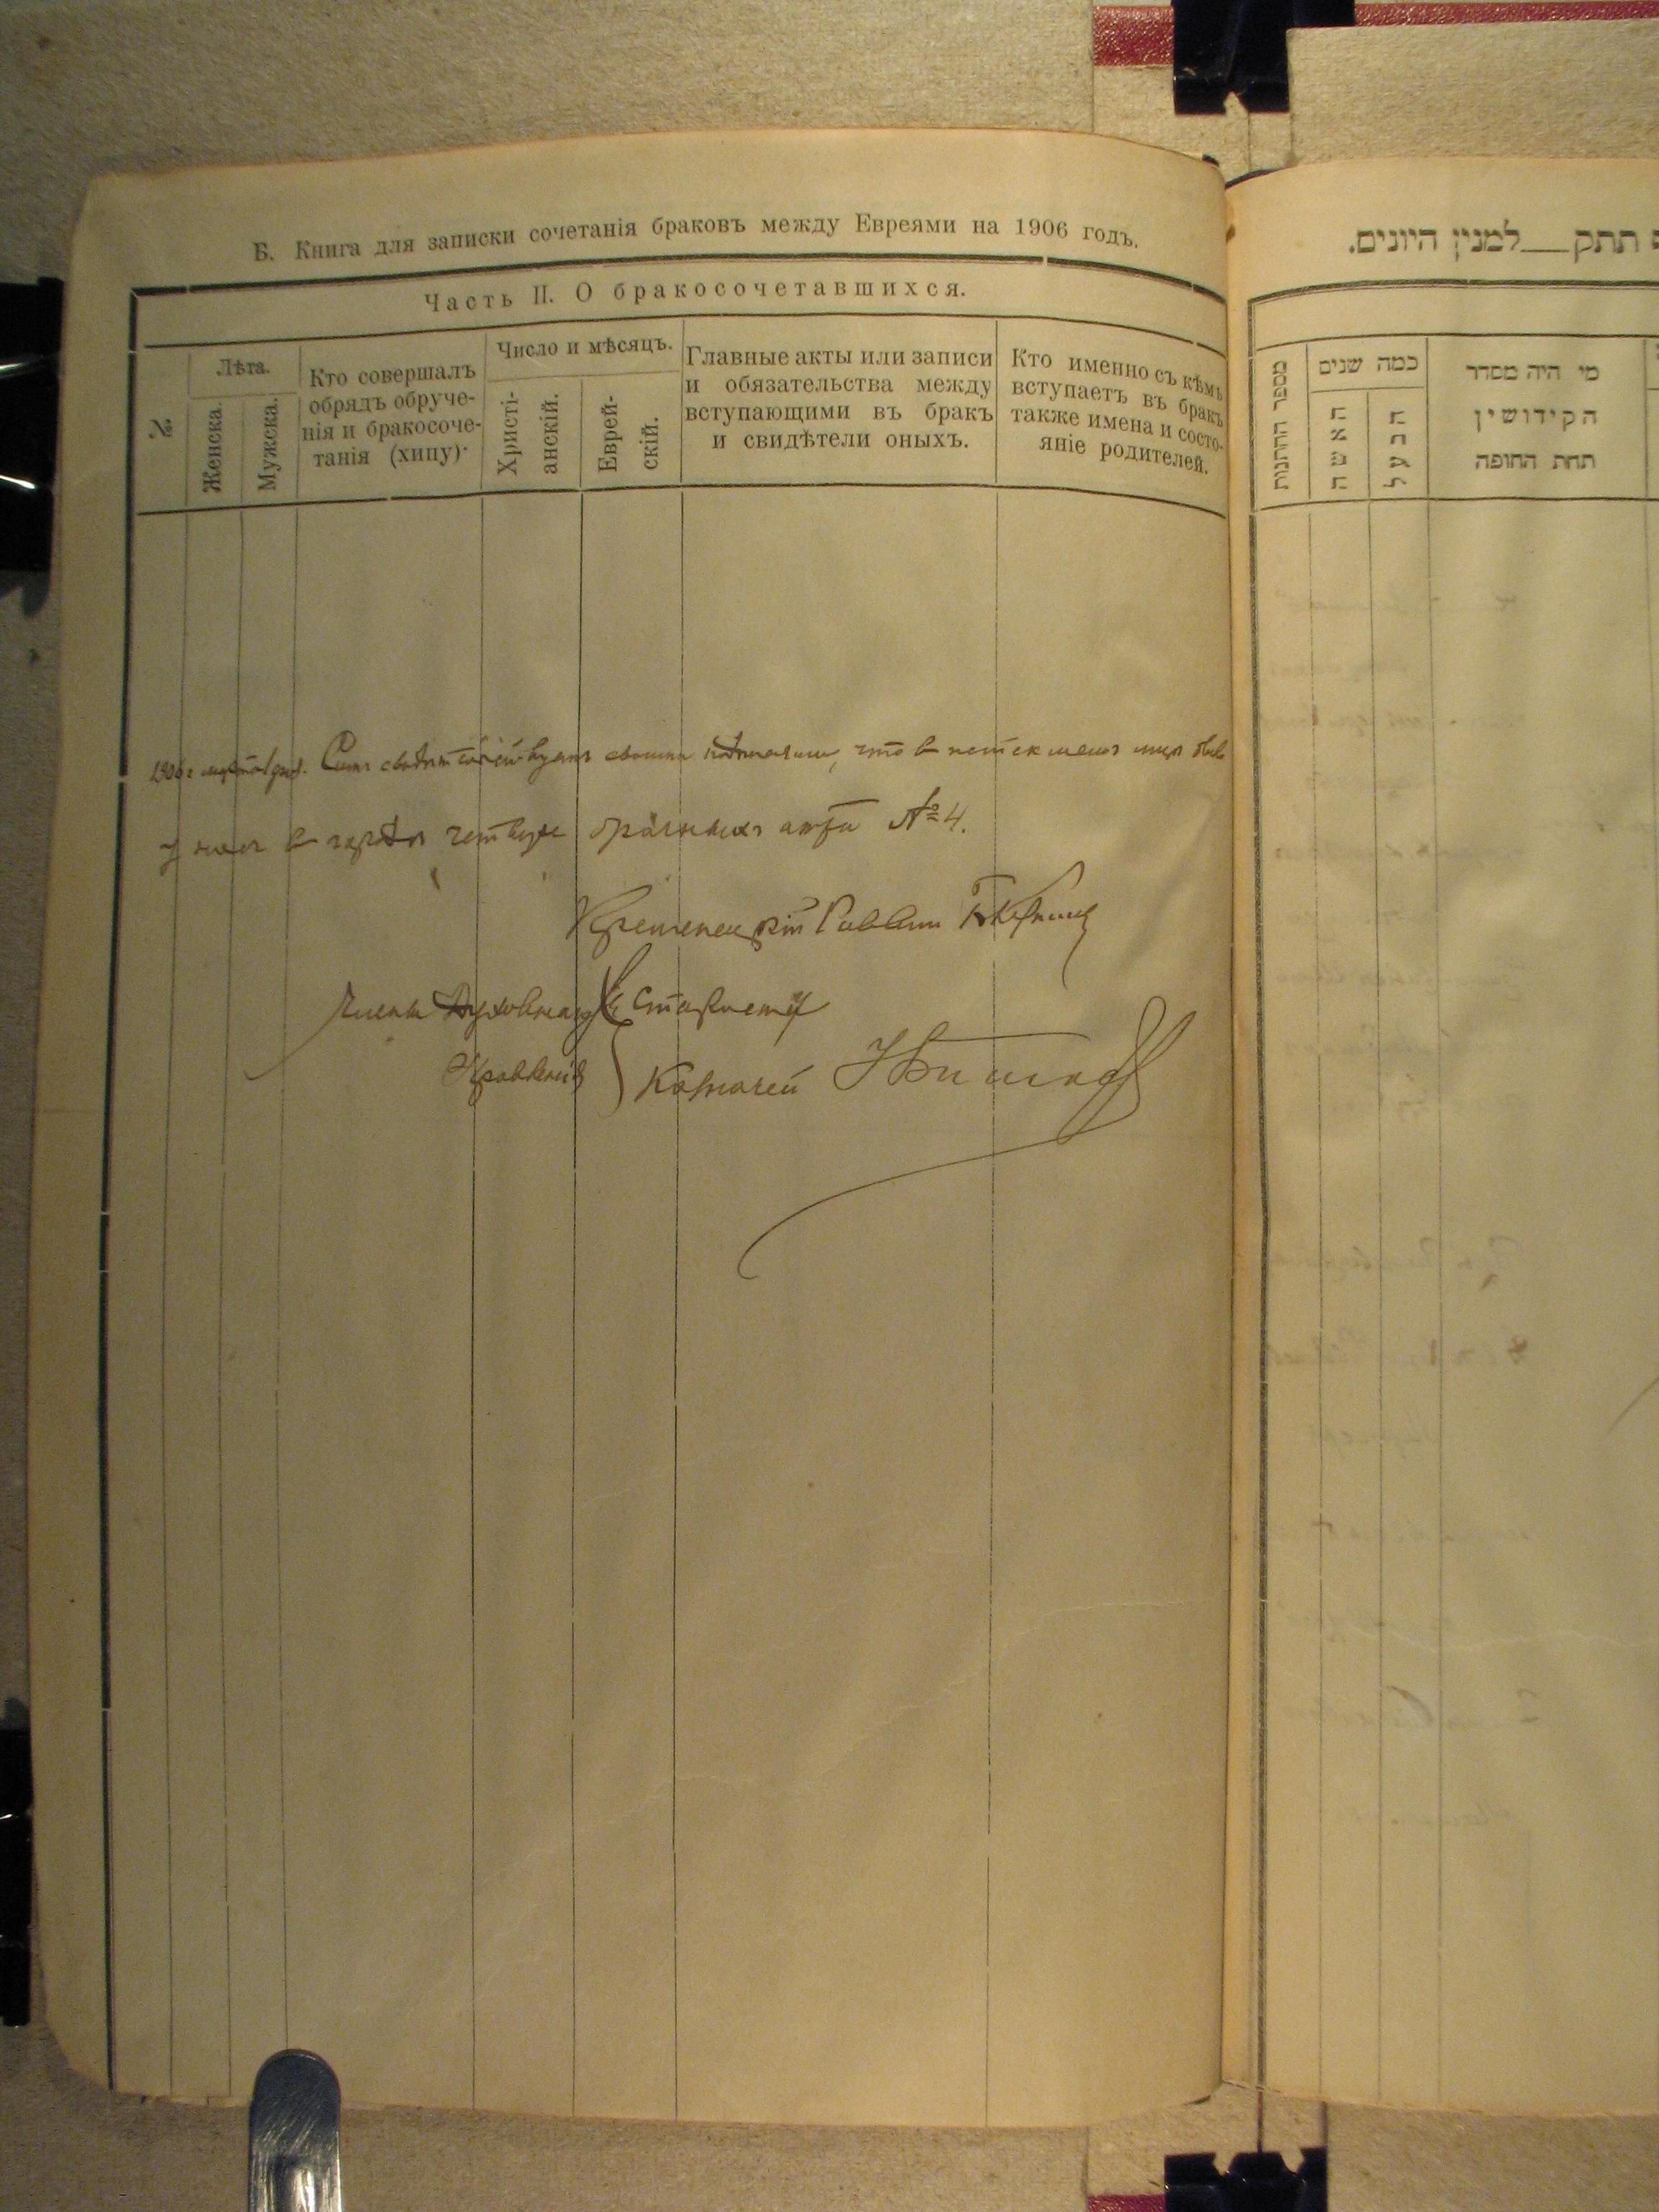 Б. Книга для записки сочетанія браковъ между Евреями на 1906 годъ.
Часть II. О бракосочетавшихся.
№
Лѣта.
Женска.
Мужска.
Кто совершалъ
обрядъ обруче-
нія и бракосоче-
танія (хипу).
Число и мѣсяцъ.
Христі-
анскій.
Еврей-
скій.
Главные акты или записи
и обязательства между
вступающими въ бракъ
и свидѣтели оныхъ.
Кто именно съ кѣмъ
вступаетъ въ бракъ
также имена и состо-
яніе родителей.
1906 г марта Симъ свидѣтельствуемъ своими что в
у насъ в городѣ четыре брачныхъ акта № 4.
Кременецкій Раввинъ
Члены Духовнаго Староста
Правленія Казначей
תתק__למנין היונים.
מספר החתנות
כמה שנים
האשה
הבעל
מי היה מסדר
הקידושין
תחת החופה